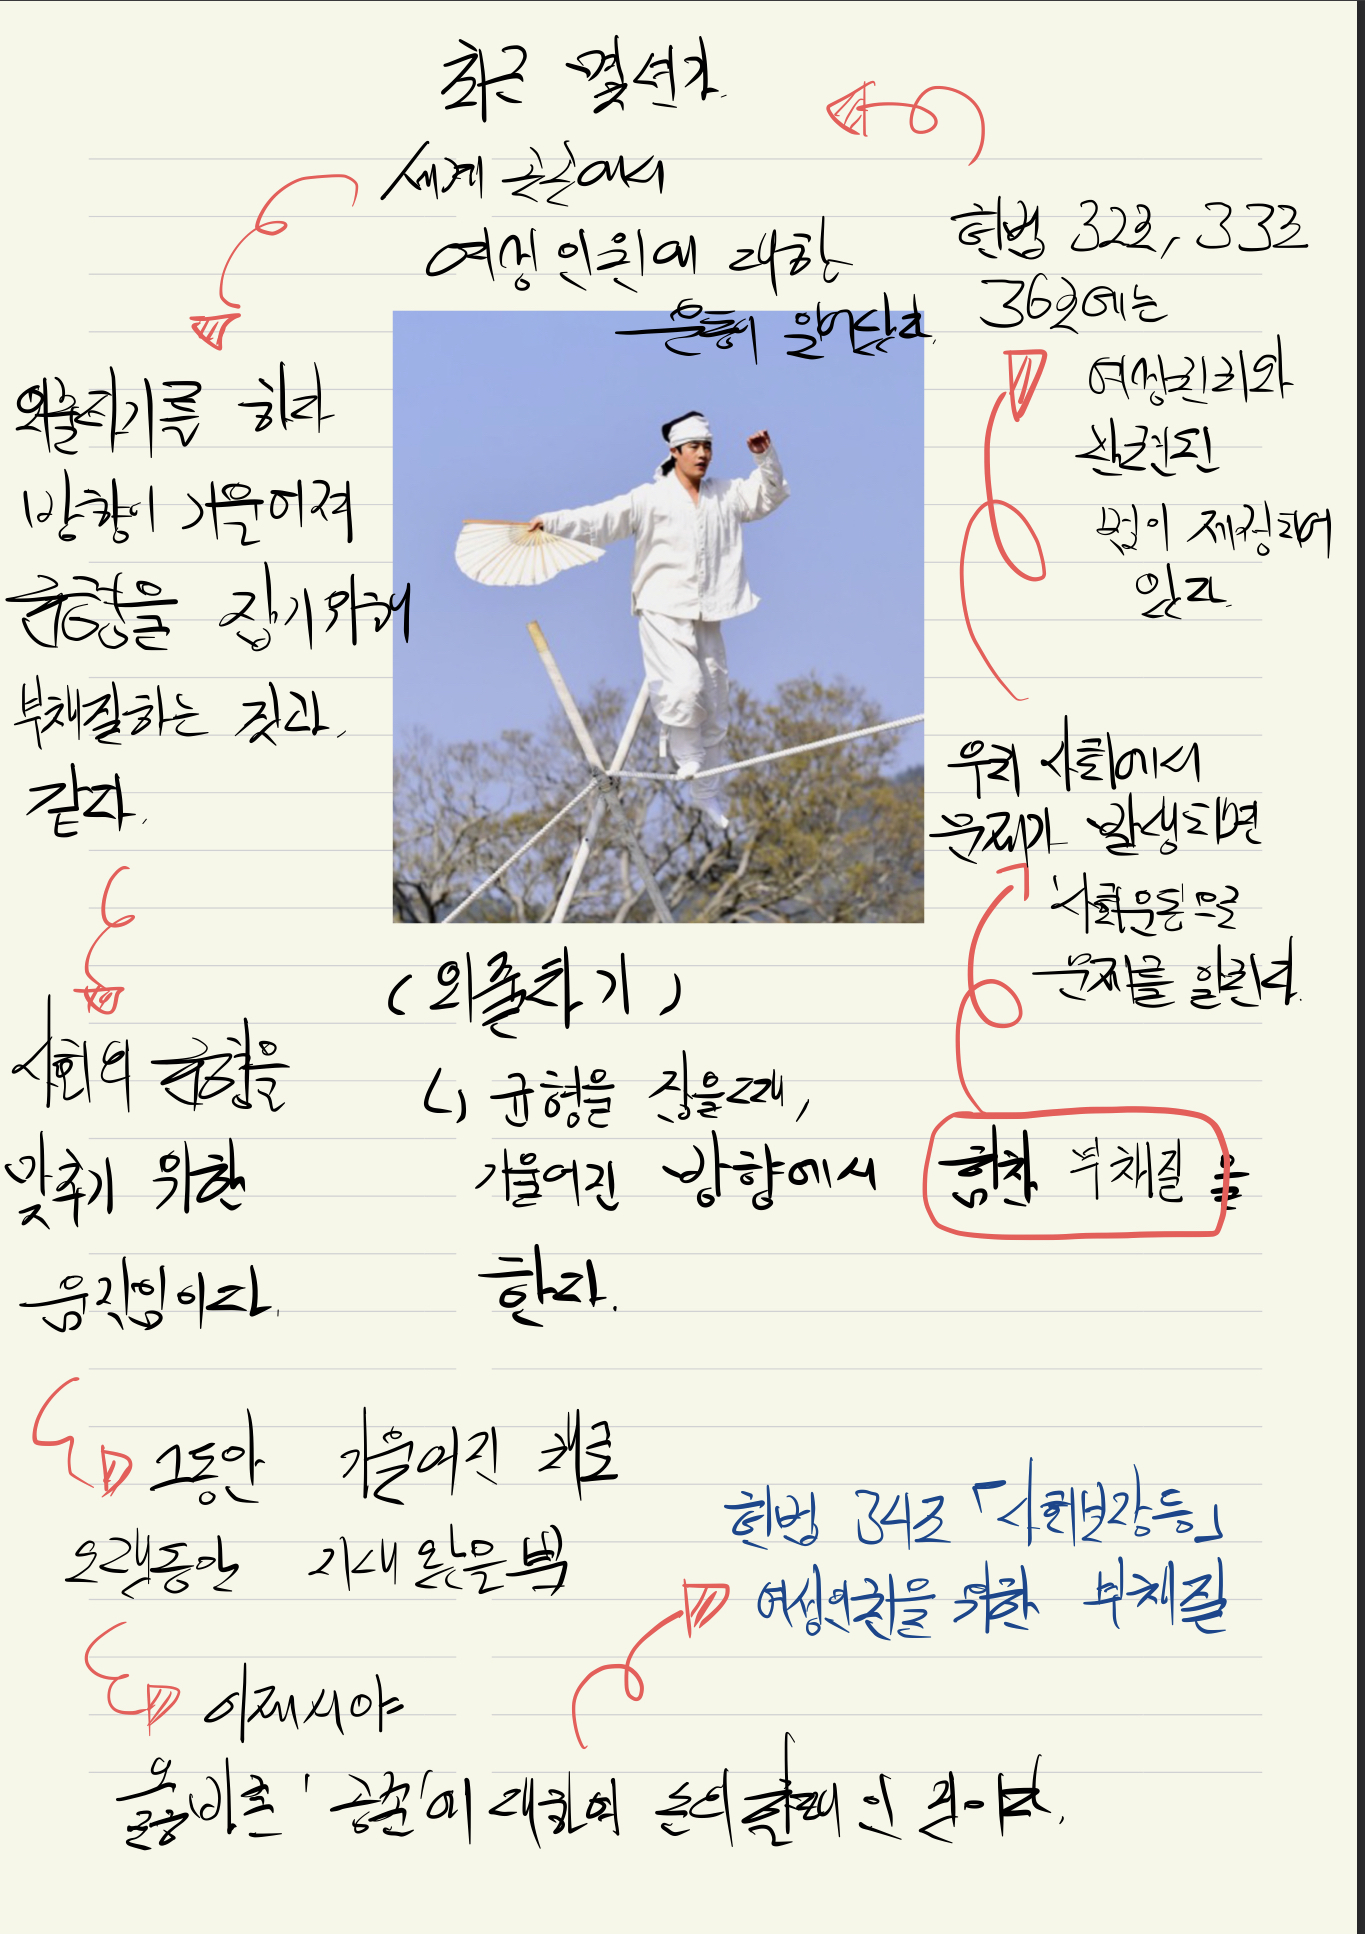 최근 몇년간
세계 곳곳에서
여성 인권에 대한
운동이 일어났다.
외줄타기를 하다
방향이 기울어져
균형을 잡기위해
부채질하는 것과
같다.
사회의 균형을
맞추기 위한
움직임이다.
(외줄타기)
↳ 균형을 잡을때,
기울어진 방향에서
힘찬 부채질을
한다.
우리 사회에서
문제가 발생되면
사회운동으로
문제를 알린다.
헌법 32조, 33조
36조에는
여성권리와
관련된
법이 제정되어
있다.
그동안 기울어진 채로
오랫동안 지내왔을뿐
이제서야
올바른 '공존'에 대하여 논의할때인 것이다.
헌법 34조 「사회보장 등」
여성인권을 위한 부채질